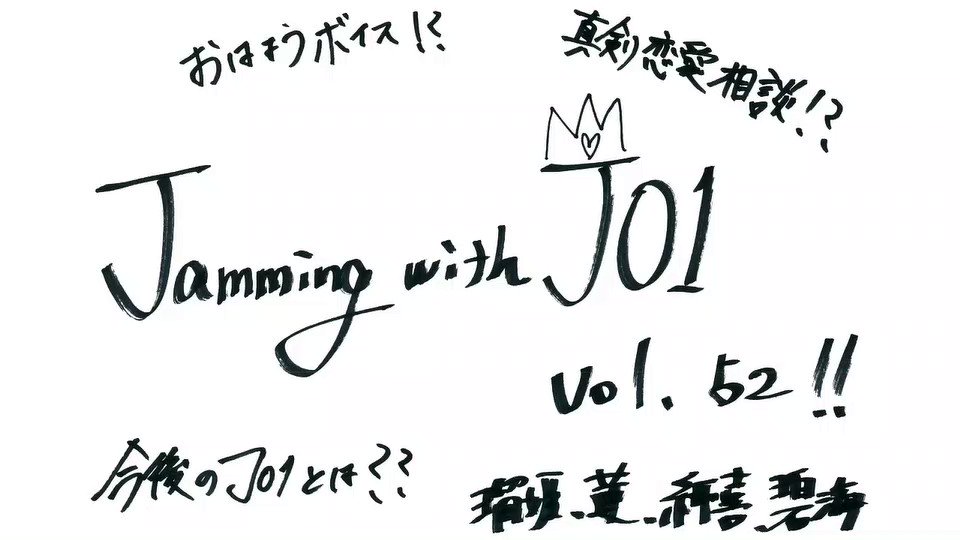 おはようボイス!?
真剣恋愛相談!?
Jamming with JO1
vol. 52!!
今後のJO1とは??
瑠姫、蓮、純喜、碧海